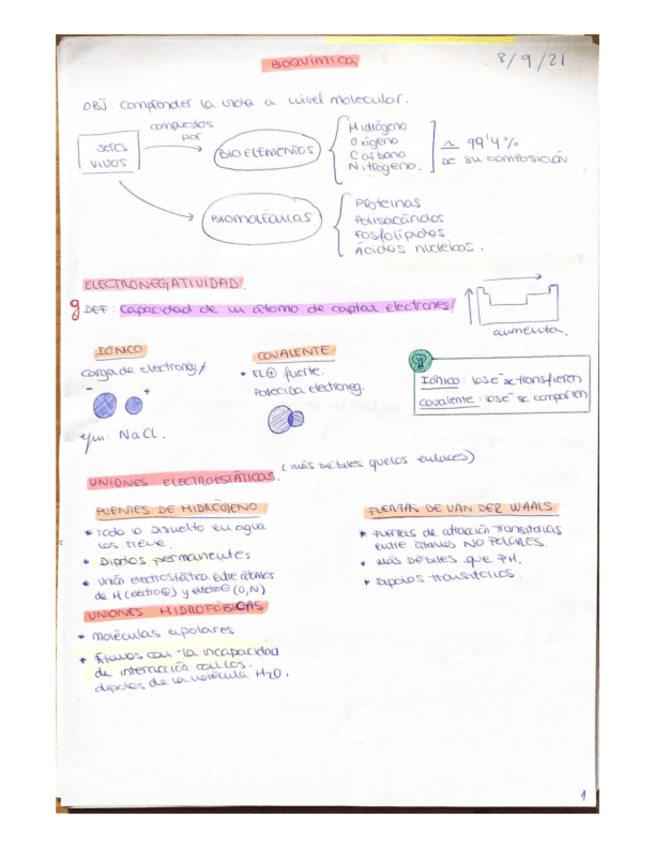 BIOQUÍMICA
8/9/21
OBJ: Comprender la vida a nivel molecular.
seres
vivos
compuestos
por
BIOELEMENTOS
Hidrógeno
Oxígeno
Carbono
Nitrógeno.
≃ 99'4%
DE su composición
BIOMOLÉCULAS
Proteínas
Polisacáridos
Fosfolípidos.
Ácidos nucleicos.
ELECTRONEGATIVIDAD.
DEF: Capacidad de un átomo de captar electrones.
aumenta.
IÓNICO
Carga de electroneg ≠
- +
ejm. NaCl.
COVALENTE
* El ⊕ fuerte.
Parecida electroneg.
Iónico: los e⁻ se transfieren
Covalente: los e⁻ se comparten
UNIONES ELECTROESTÁTICAS. (más débiles que los enlaces)
PUENTES DE HIDRÓGENO
* Todo lo disuelto en agua
los tiene.
* Dipolos permanentes
* Unión electrostática entre átomos
de H (electro⊕) y electro⊖ (O,N)
FUERZAS DE VAN DER WAALS
* Fuerzas de atracción transitorias
entre átomos NO POLARES.
* Más débiles que PH.
* Dipolos transitorios.
UNIONES HIDROFÓBICAS
* Moléculas apolares
* Átomos con la incapacidad
de interacción con los
dipolos de la molécula H2O.
1